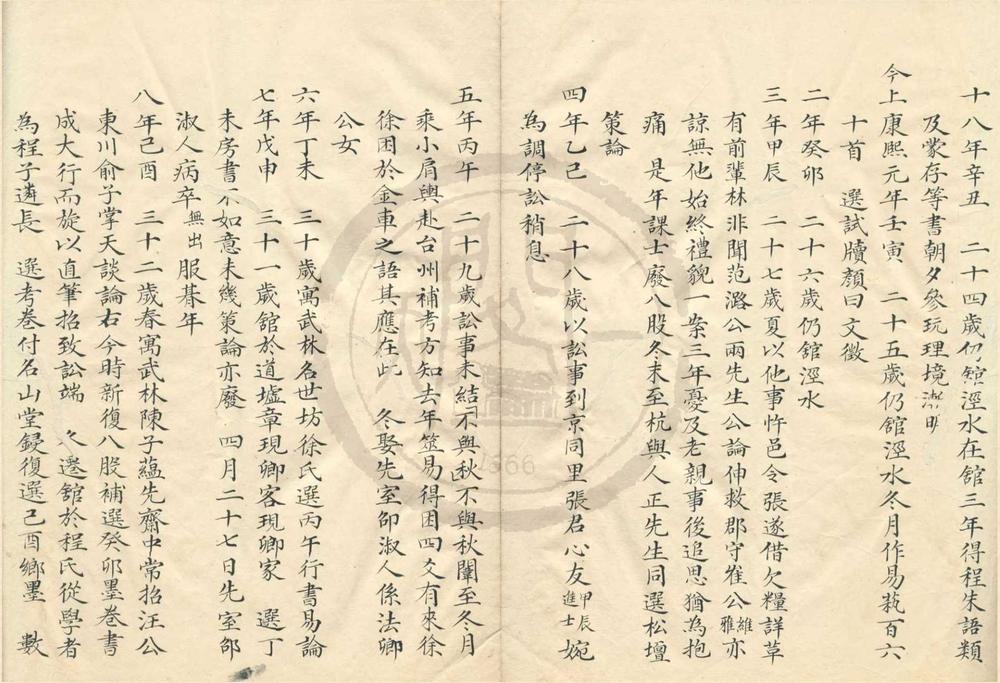 十八年辛丑　二十四歲仍舘涇水在舘三年得程朱語類
及蒙存等書朝夕參玩理境漸明
今上康熙元年壬寅　二十五歲仍舘涇水冬月作易藝百六
十首　選試牘顏曰文徵
二年癸卯　二十六歲仍舘涇水
三年甲辰　二十七歲夏以他事忤邑令張遂借欠糧詳革
有前輩林非聞范潞公兩先生公論伸救郡守崔公維雅亦
諒無他始終禮貌一案三年憂及老親事後追思猶為抱
痛　是年課士廢八股冬末至杭與人正先生同選松壇
策論
四年乙巳　二十八歲以訟事到京同里張君心友甲辰進士婉
為調停訟稍息
五年丙午　二十九歲訟事未結不與秋不與秋闈至冬月
乘小肩輿赴台州補考方知去年筮易得困四爻有來徐
徐困於金車之語其應在此　冬娶先室邵淑人係法卿
公女
六年丁未　三十歲寓武林名世坊徐氏選丙午行書易論
七年戊申　三十一歲舘於道墟章現卿客現卿家　選丁
未房書不如意未幾策論亦廢　四月二十七日先室邵
淑人病卒無出服朞年
八年己酉　三十二歲春寓武林陳子藴先齋中常招汪公
東川俞子掌天談論右今時新復八股補選癸卯墨卷書
成大行而旋以直筆招致訟端　夂遷舘於程氏從學者
為程子遴長　選考卷付名山堂録復選己酉鄉墨　數